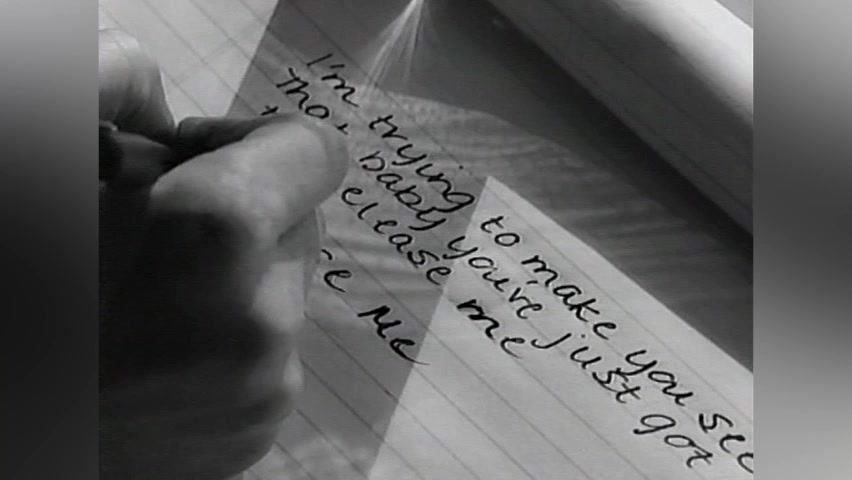 I'm trying to make you see
That baby you've just got
elease me
Me